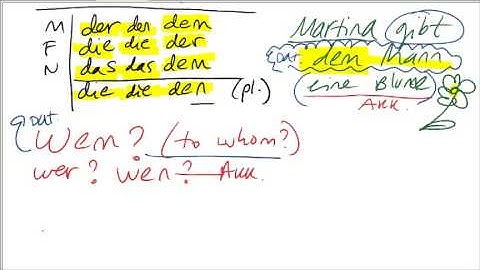 M der den dem
F die die der
N das das dem
die die den (pl.)
Martina gibt
dat. dem Mann
eine Blume
Akk.
dat.
Wem? (to whom?)
wer? wen? Akk.